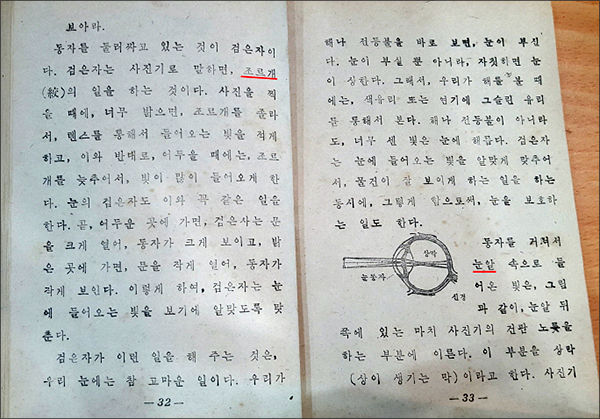 보아라.
동자를 둘러짜고 있는 것이 검은자이
다. 검은자는 사진기로 말하면, 조르개
(絞)의 일을 하는 것이다. 사진을 찍
을 때에, 너무 밝으면, 조르개를 졸라
서, 렌스를 통해서 들어오는 빛을 적게
하고, 이와 반대로, 어두울 때에는, 조르
개를 늦추어서, 빛이 많이 들어오게 한
다. 눈의 검은자도 이와 꼭 같은 일을
한다. 곧, 어두운 곳에 가면, 검은자는 문
을 크게 열어, 동자가 크게 보이고, 밝
은 곳에 가면, 문을 작게 열어, 동자가
작게 보인다. 이렇게 하여, 검은자는 눈
에 들어오는 빛을 보기에 알맞도록 맞
춘다.
검은자가 이런 일을 해 주는 것은,
우리 눈에는 참 고마운 일이다. 우리가
— 32 —
해나 전등불을 바로 보면, 눈이 부신
다. 눈이 부실 뿐 아니라, 자칫하면 눈
이 상한다. 그래서, 우리가 해를 볼 때
에는, 색유리 또는 연기에 그슬린 유리
를 통해서 본다. 해나 전등불이 아니라
도, 너무 센 빛은 눈에 해롭다. 검은자
는 눈에 들어오는 빛을 알맞게 맞추어
서, 물건이 잘 보이게 하는 일을 하는
동시에, 그렇게 함으로써, 눈을 보호하
는 일도 한다.
동자를 거쳐서
눈알 속으로 들
어온 빛은, 그림
과 같이, 눈알 뒤
쪽에 있는 마치 사진기의 건판 노릇을
하는 부분에 이른다. 이 부분을 상막
(상이 생기는 막)이라고 한다. 사진기
상막
눈동자
신경
— 33 —